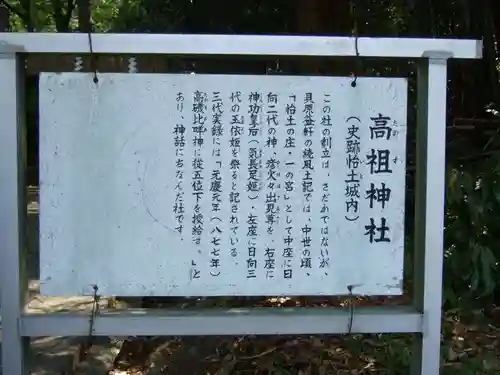 高祖神社
たかす
(史跡怡土城内)
この社の創立は、さだかではないが、
貝原益軒の続風土記では、中世の頃、
「怡土の庄・一の宮」として中座に日
向二代の神、彦火々出見尊を、右座に
神功皇后(気長足姫)・左座に日向三
代の玉依姫を祭ると記されている。
三代実録には「元慶元年(八七七年)
高磯比咩神に従五位下を授給す。」と
あり、神話にちなんだ社です。